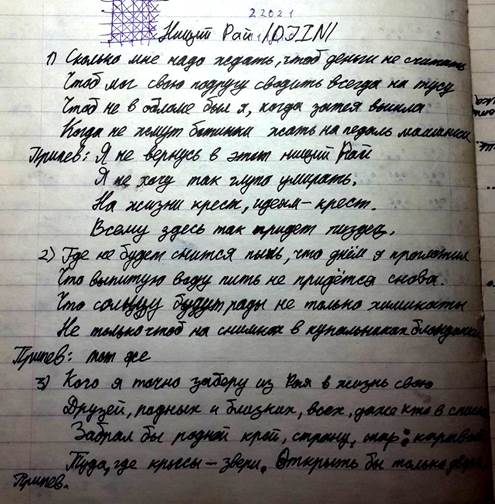 22021
Нищий Рай /DJIN/
1) Сколько мне надо ждать, чтоб деньги не считать
Чтоб мог свою подругу сводить всегда на тусу
Чтоб не в обломе был я, когда затея вышла
Когда не жмут ботинки жать на педаль машинки
Припев: Я не вернусь в этот нищий Рай
Я не хочу так глупо умирать.
На жизни крест, идеям - крест.
Всему здесь так придет пиздец.
2) Где не будет снится пыль, что днём я проглотил
Что выпитую воду пить не придётся снова.
Что солнцу будут рады не только химикаты
Не только чтоб на снимках в купальниках блондинки
Припев: тот же
3) Кого я точно заберу из Рая в жизнь свою
Друзей, родных и близких, всех, даже кто в
Забрал бы родной край, страну,
Туда, где крысы - звери. Открыть бы только
Припев.